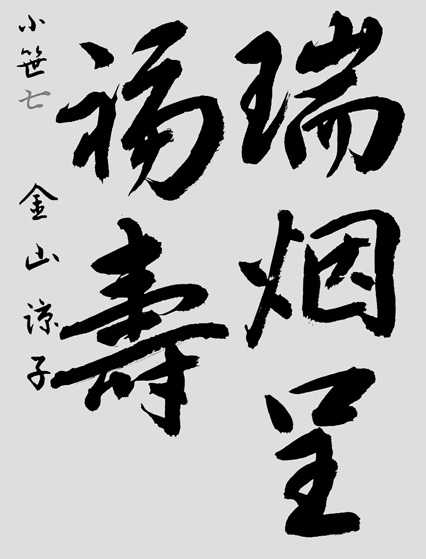 瑞烟呈
福壽
小笹七 金山諒子